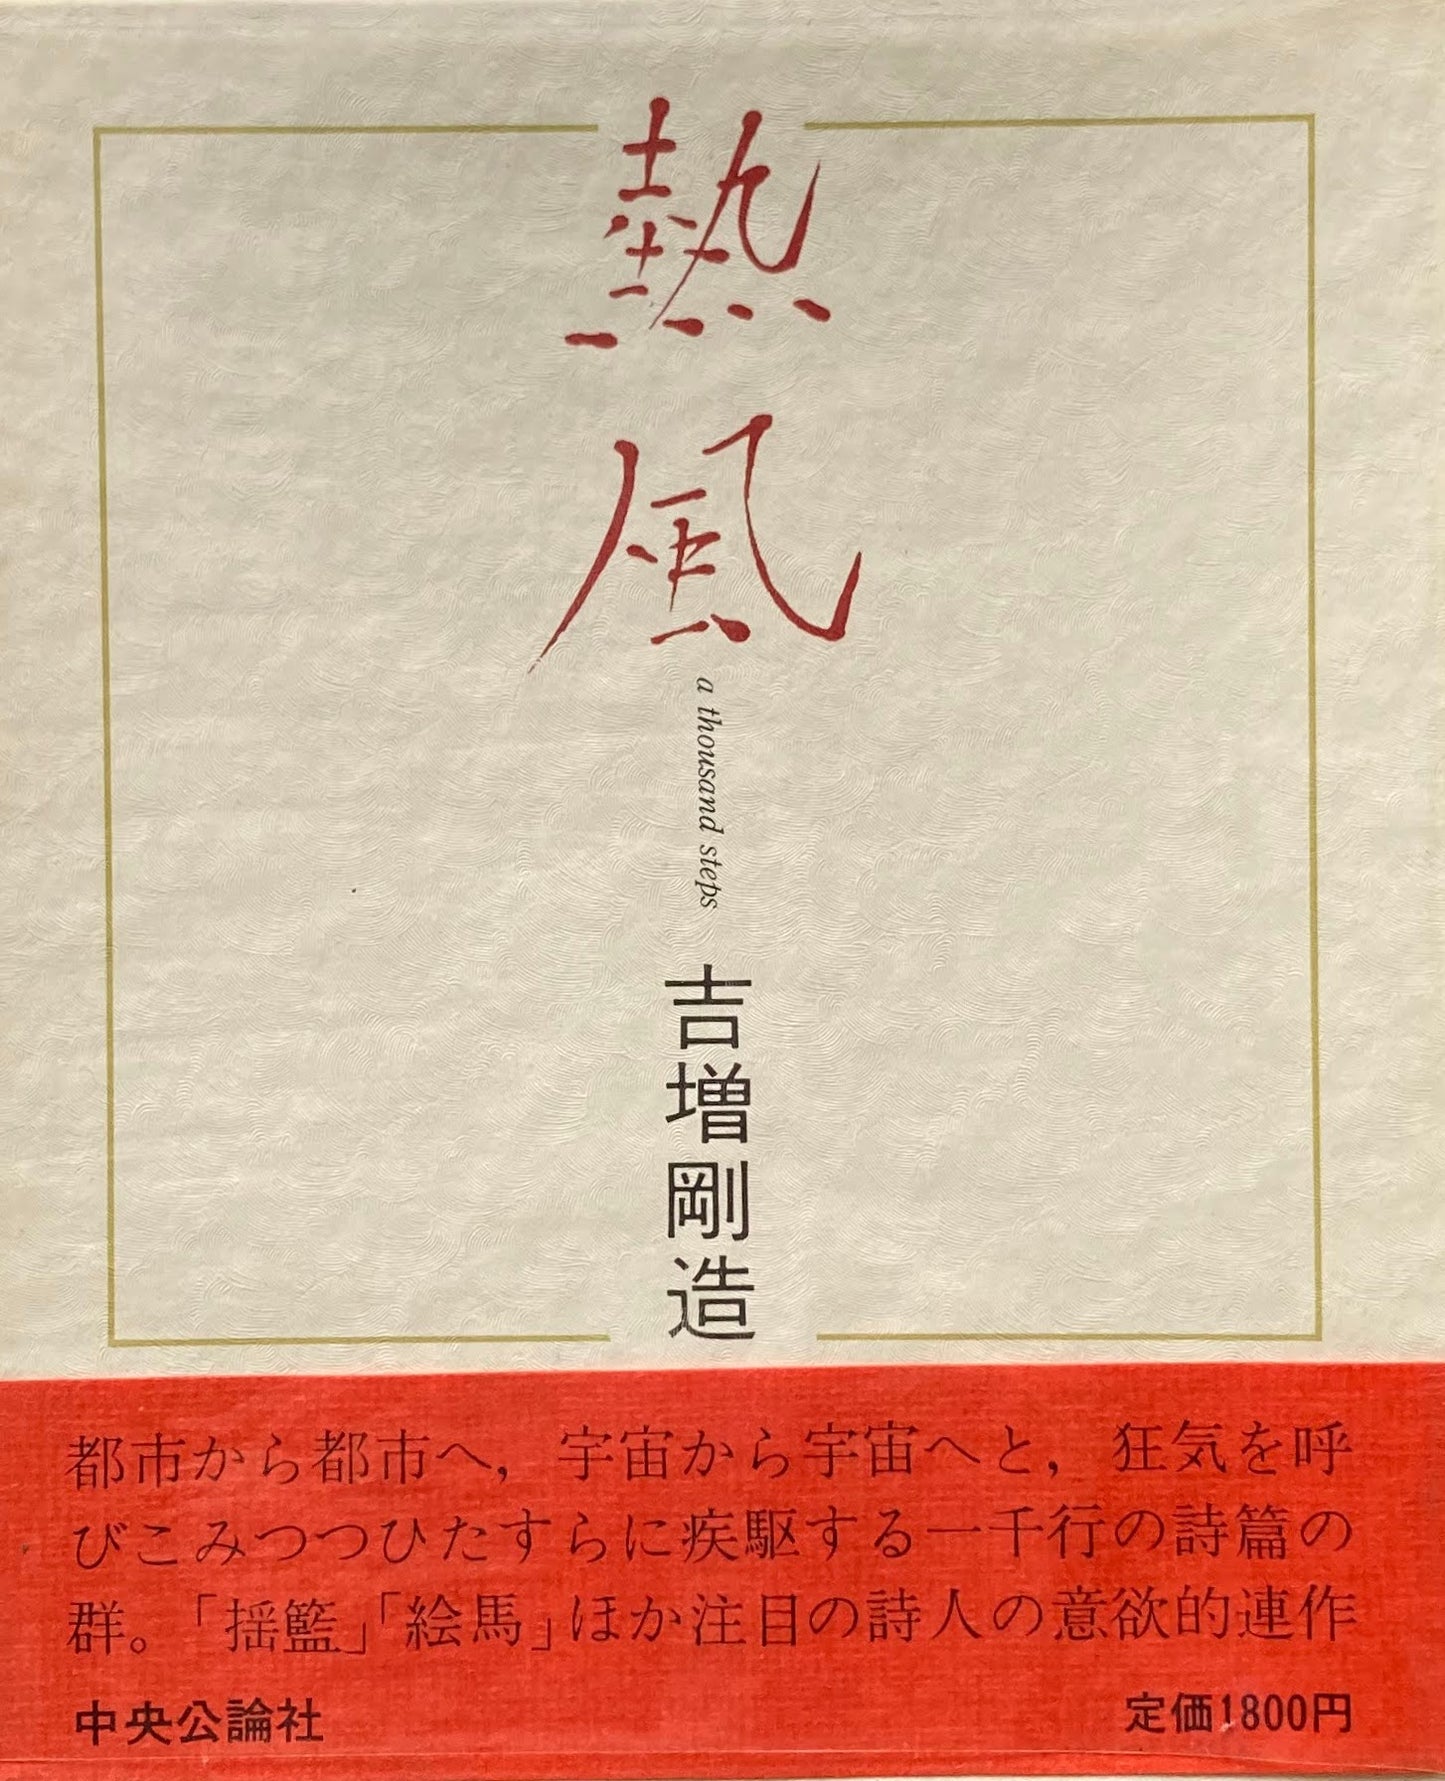 熱風
a thousand steps
吉増剛造
都市から都市へ，宇宙から宇宙へと，狂気を呼
びこみつつひたすらに疾駆する一千行の詩篇の
群。「揺籃」「絵馬」ほか注目の詩人の意欲的連作
中央公論社
定価1800円